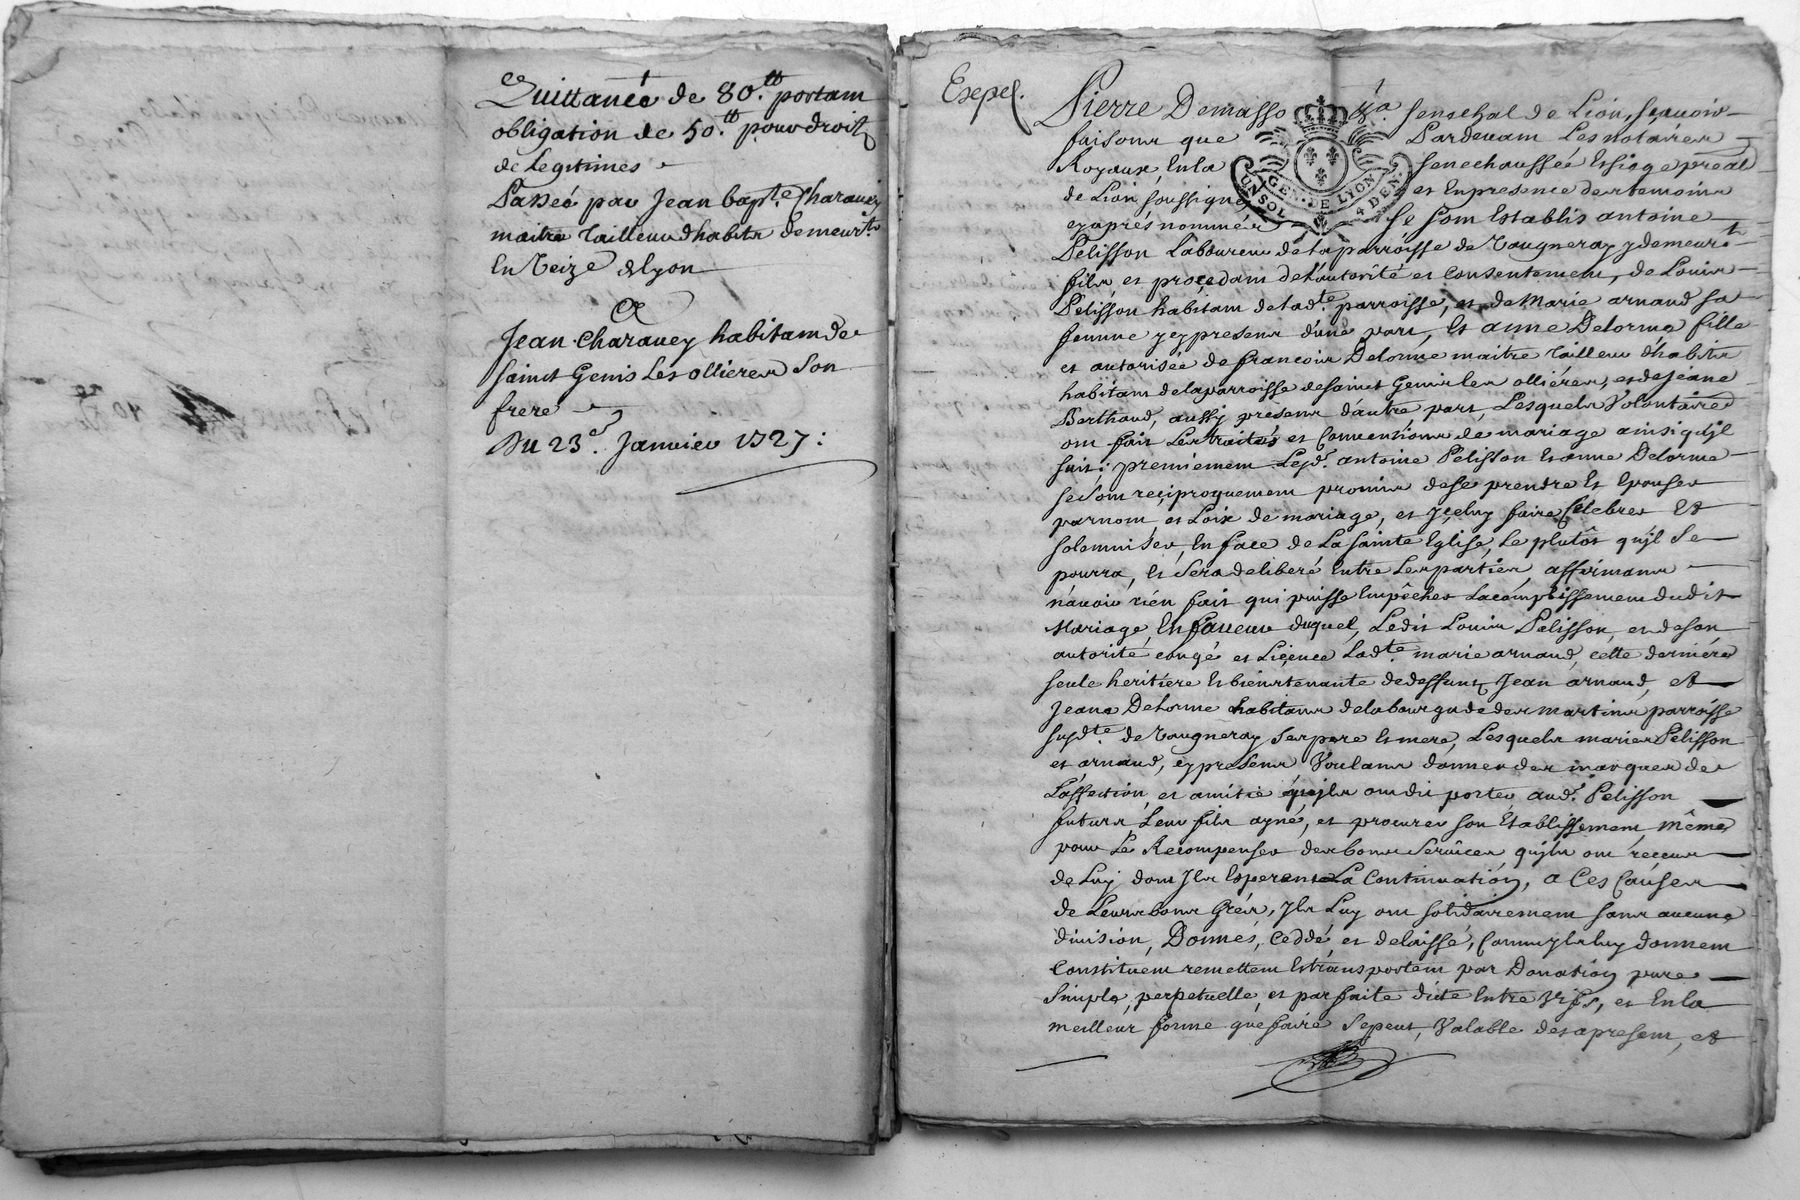 Quittance de 80.tt portam
obligation de 50.tt pour droit
de Legitimes
Passée par Jean bapt.e Charauey
maitre tailleur dhabits demeur.t
En Veize Lyon
A
Jean Charauey habitam de
Saint Genis Les ollieres Son
frere
Du 23.e Janvier 1727:
Exped.
Pierre Demasso Senechal de Lion, sçauoir
faisons que Pardeuam Les notaires
Royaux, En la Senechaussée Et siege preal
de Lion soussignés et En presence des temoins
cy aprés nommés Se som Establis antoine
Pelisson Laboureur de la parroisse de Vaugneray y demeur.t
fils, et procedam de L'autorité et Consentement, de Louis
Pelisson habitam de lad.te parroisse, et de Marie arnaud sa
femme y cy presens d'une part, Et anne Delorme fille
et autorisée de francois Delorme maitre tailleur d'habits
habitam de la parroisse de Saint Genis les ollieres, et de Jeane
Berthaud, aussy presens d'autre part, Lesquels Volontaire
om fait Les traités et Conventions de mariage ainsi qu'jl
suit: premierement Lesd.t antoine Pelisson Et anne Delorme
se som reçiproquement promis de se prendre Et Epouser
par nom et Loix de mariage, et jçeluy faire Celebrer Et
solemniser, En face de La sainte Eglise, Le plutôt qu'jl se
pourra, Et sera deliberé Entre Les parties, affirmans
n'avoir rien fait qui puisse Empêcher Lacomplissement dudit
Mariage, En faveur duquel, Ledit Louis Pelisson, et de son
autorité congé et Liçence Lad.te marie arnaud, cette derniere
seule heritiere Et bien tenante de deffunt Jean arnaud, et
Jeane Delorme habitans de la bourgade des martins parroisse
susd.te de Vaugneray Ses pere Et mere, Lesquels mariés Pelisson
et arnaud, cy presens Voulans donner des marques de
L'affection et amitié qu'jls om dit porter aud.t Pelisson
futurs Leur fils ayné, et procurer son Etablissement, même
pour Le Recompenser des bons Services qu'jls om reçeus
de Luy dom Jls Esperent La Continuation, a Ces Causes
de Leurs bons Grés, Jls Luy om solidairement sans aucune
division, Donnés, Ceddé, et delaissé, Comm' jls luy donnem
Constituem remettem Et transportem par Donation pure
Simple, perpetuelle, et parfaite dicte Entre Vifs, et En la
meilleur forme que faire se peut, Valable des a presem, et
GEN. DE LYON
UN SOL 4 DEN.